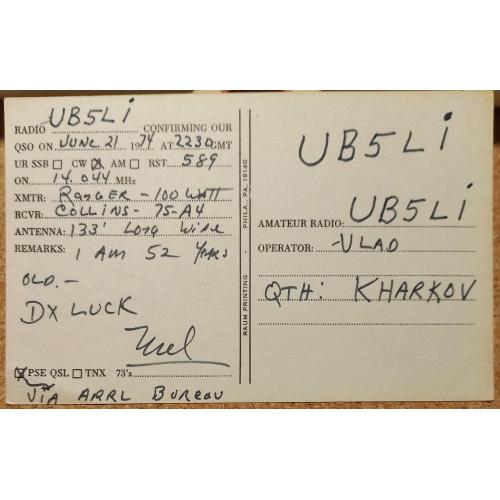 RADIO UB5Li CONFIRMING OUR
QSO ON JUNE 21 1974 AT 2230 GMT
UR SSB ☐ CW ☒ AM ☐ RST 589
ON 14.044 MHz
XMTR: RANGER - 100 WATT
RCVR: COLLINS - 75-A4
ANTENNA: 133' LONG WIRE
REMARKS: I AM 52 YEARS
OLD.-
DX LUCK
Mel
☒ PSE QSL ☐ TNX 73's
VIA ARRL BUREAU
RAUM PRINTING - PHILA., PA. 19140
UB5Li
AMATEUR RADIO: UB5Li
OPERATOR: -VLAD
QTH: KHARKOV